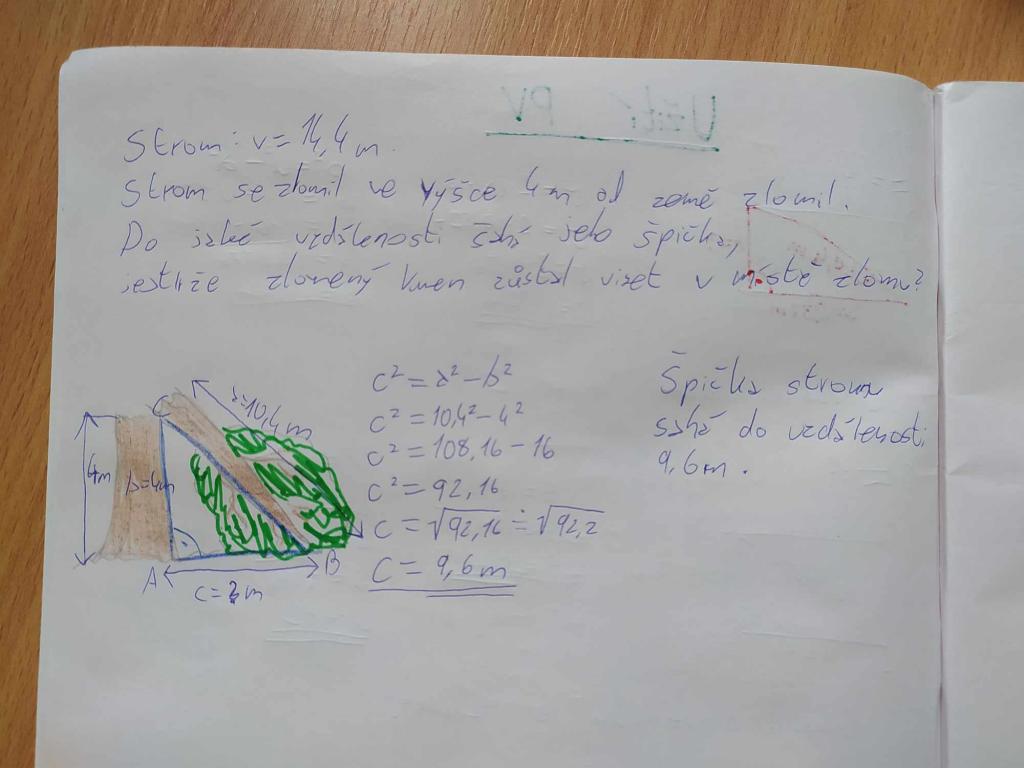 Užití PV
Strom: v = 14,4 m.
Strom se zlomil ve výšce 4m od země zlomil.
Do jaké vzdálenosti sahá jeho špička,
jestliže zlomený kmen zůstal viset v místě zlomu?
C
a=10,4m
4m
b=4m
A
B
c=?m
c² = a² - b²
c² = 10,4² - 4²
c² = 108,16 - 16
c² = 92,16
c = √92,16 ≐ √92,2
c = 9,6 m
Špička stromu
sahá do vzdálenosti
9,6m.